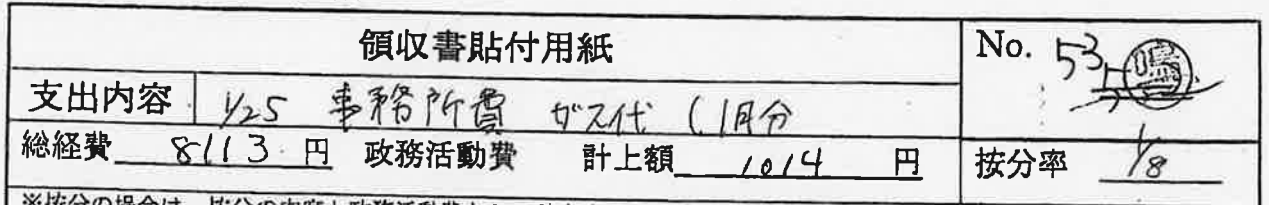 領収書貼付用紙 No. 53
支出内容 1/25 事務所費 ガス代 (1月分
総経費 8113 円 政務活動費 計上額 1014 円 按分率 1/8